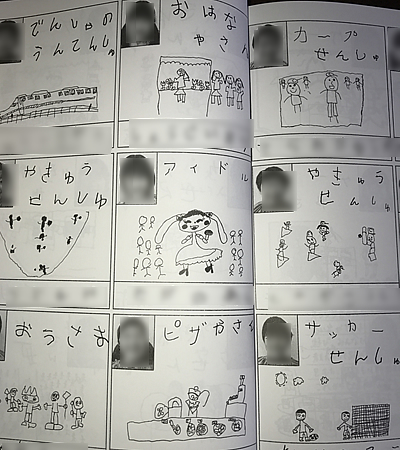 でんしゃの
うんてんしゅ
おはな
やさん
カープ
せんしゅ
やきゅう
せんしゅ
アイドル
やきゅう
せんしゅ
おうさま
ピザやさん
サッカー
せんしゅ